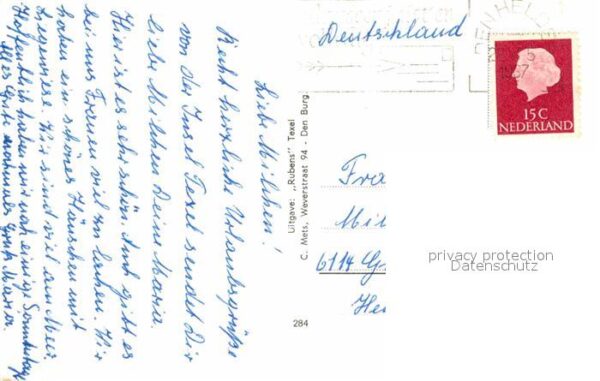 Liebe Milchen!
Recht herzliche Urlaubsgrüße
von der Insel Texel sendet Dir
liebe Milchen Deine Maria.
Hier ist es sehr schön. Auch gibt es
bei uns Frauen viel zu lachen. Wir
haben ein schönes Häuschen mit
Wir sind viel am Meer
Hoffentlich haben wir noch einige Sonnentage
Alles Gute nochmals Gruß Maria.
Uitgave: „Rubens" Texel
C. Mets, Weverstraat 94 - Den Burg
284
Deutschland
DEN HELDER
15 C
NEDERLAND
Fra
Mil
6114 G
He
privacy protection
Datenschutz